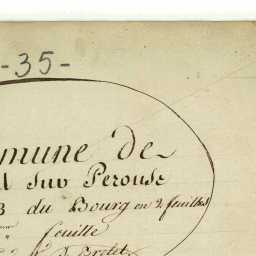 -35-
mune de
l sur Perouse
B du Bourg en 2 feuilles
feuille